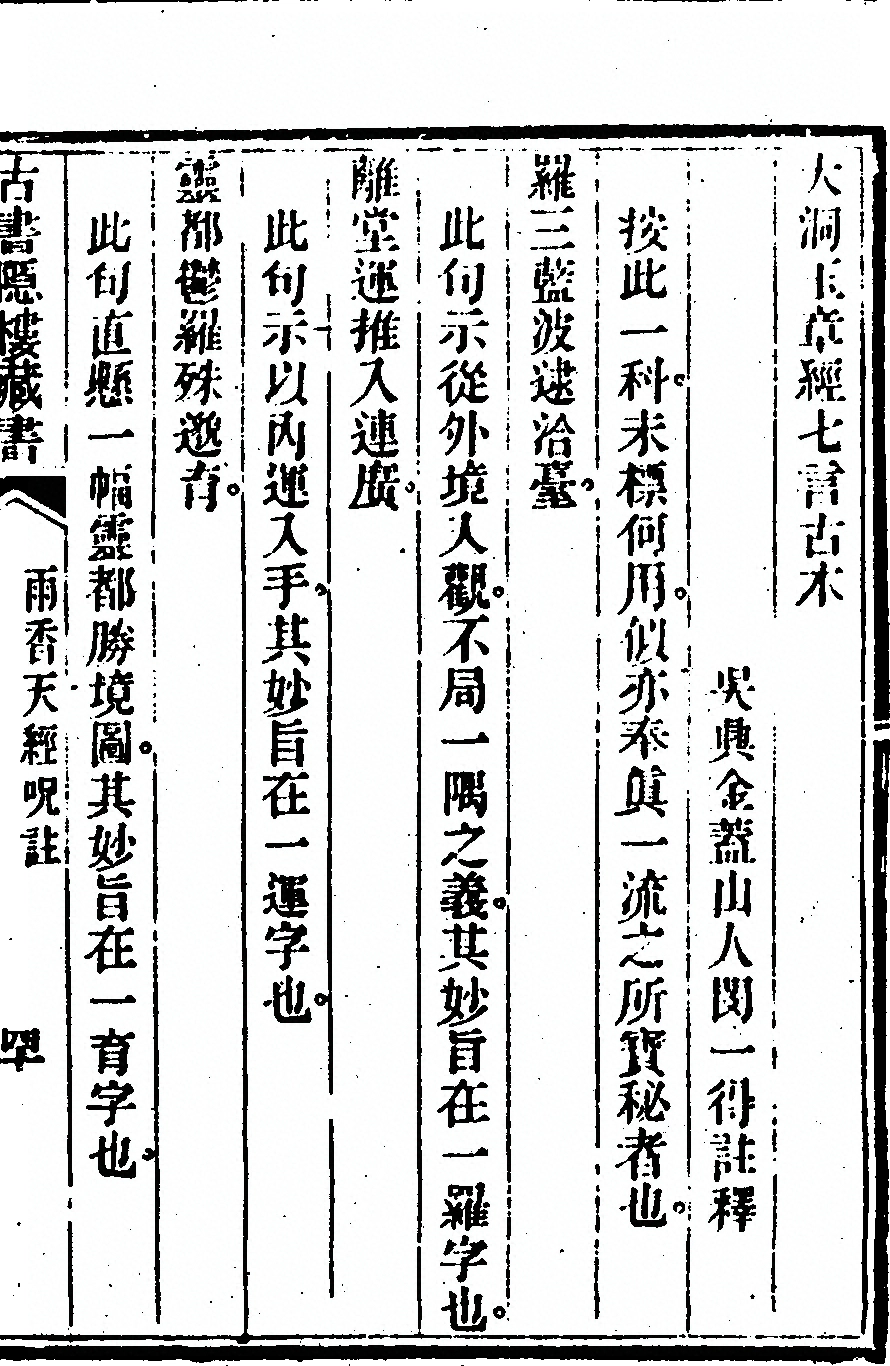 大洞玉章經七言古本
吳興金蓋山人閔一得註釋
按此一科。未標何用。似亦奉眞一流之所寶秘者也。
羅三藍波逮洽臺。
此句示從外境入觀。不局一隅之義。其妙旨在一羅字也。
離堂運推入連廣。
此句示以內運入手。其妙旨在一運字也。
靈都鬱羅殊邀育。
此句直懸一幅靈都勝境圖。其妙旨在一育字也。
古書隱樓藏書
雨香天經呪註